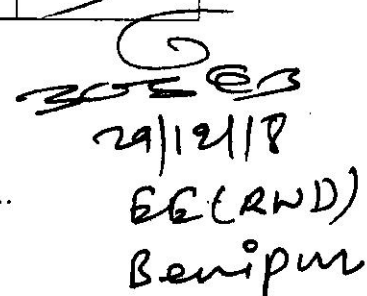 29/12/18
EE(RWD)
Benipur